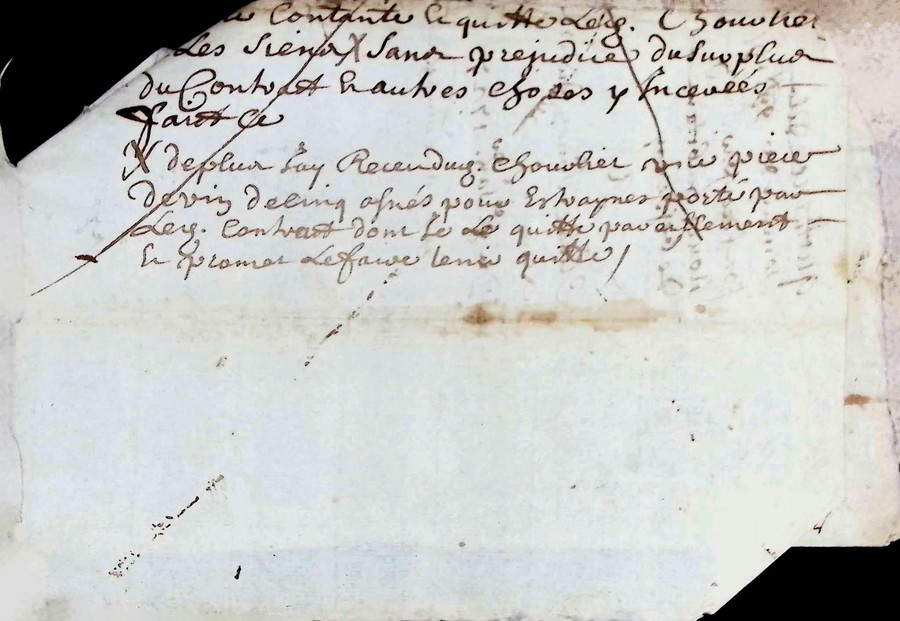 Contante Et quitte Led. Chovelier
Les Siens X Sans prejudice du Surplus
du Contract Et autres choses y Incerées
faict Ce
X de plus J'ay Receu dud. Chovelier une piece
de vin de cinq asnés pour Estraynes porté par
Led. Contract dont Je Le quitte pareillement
Et promet Le faire tenir quitte /